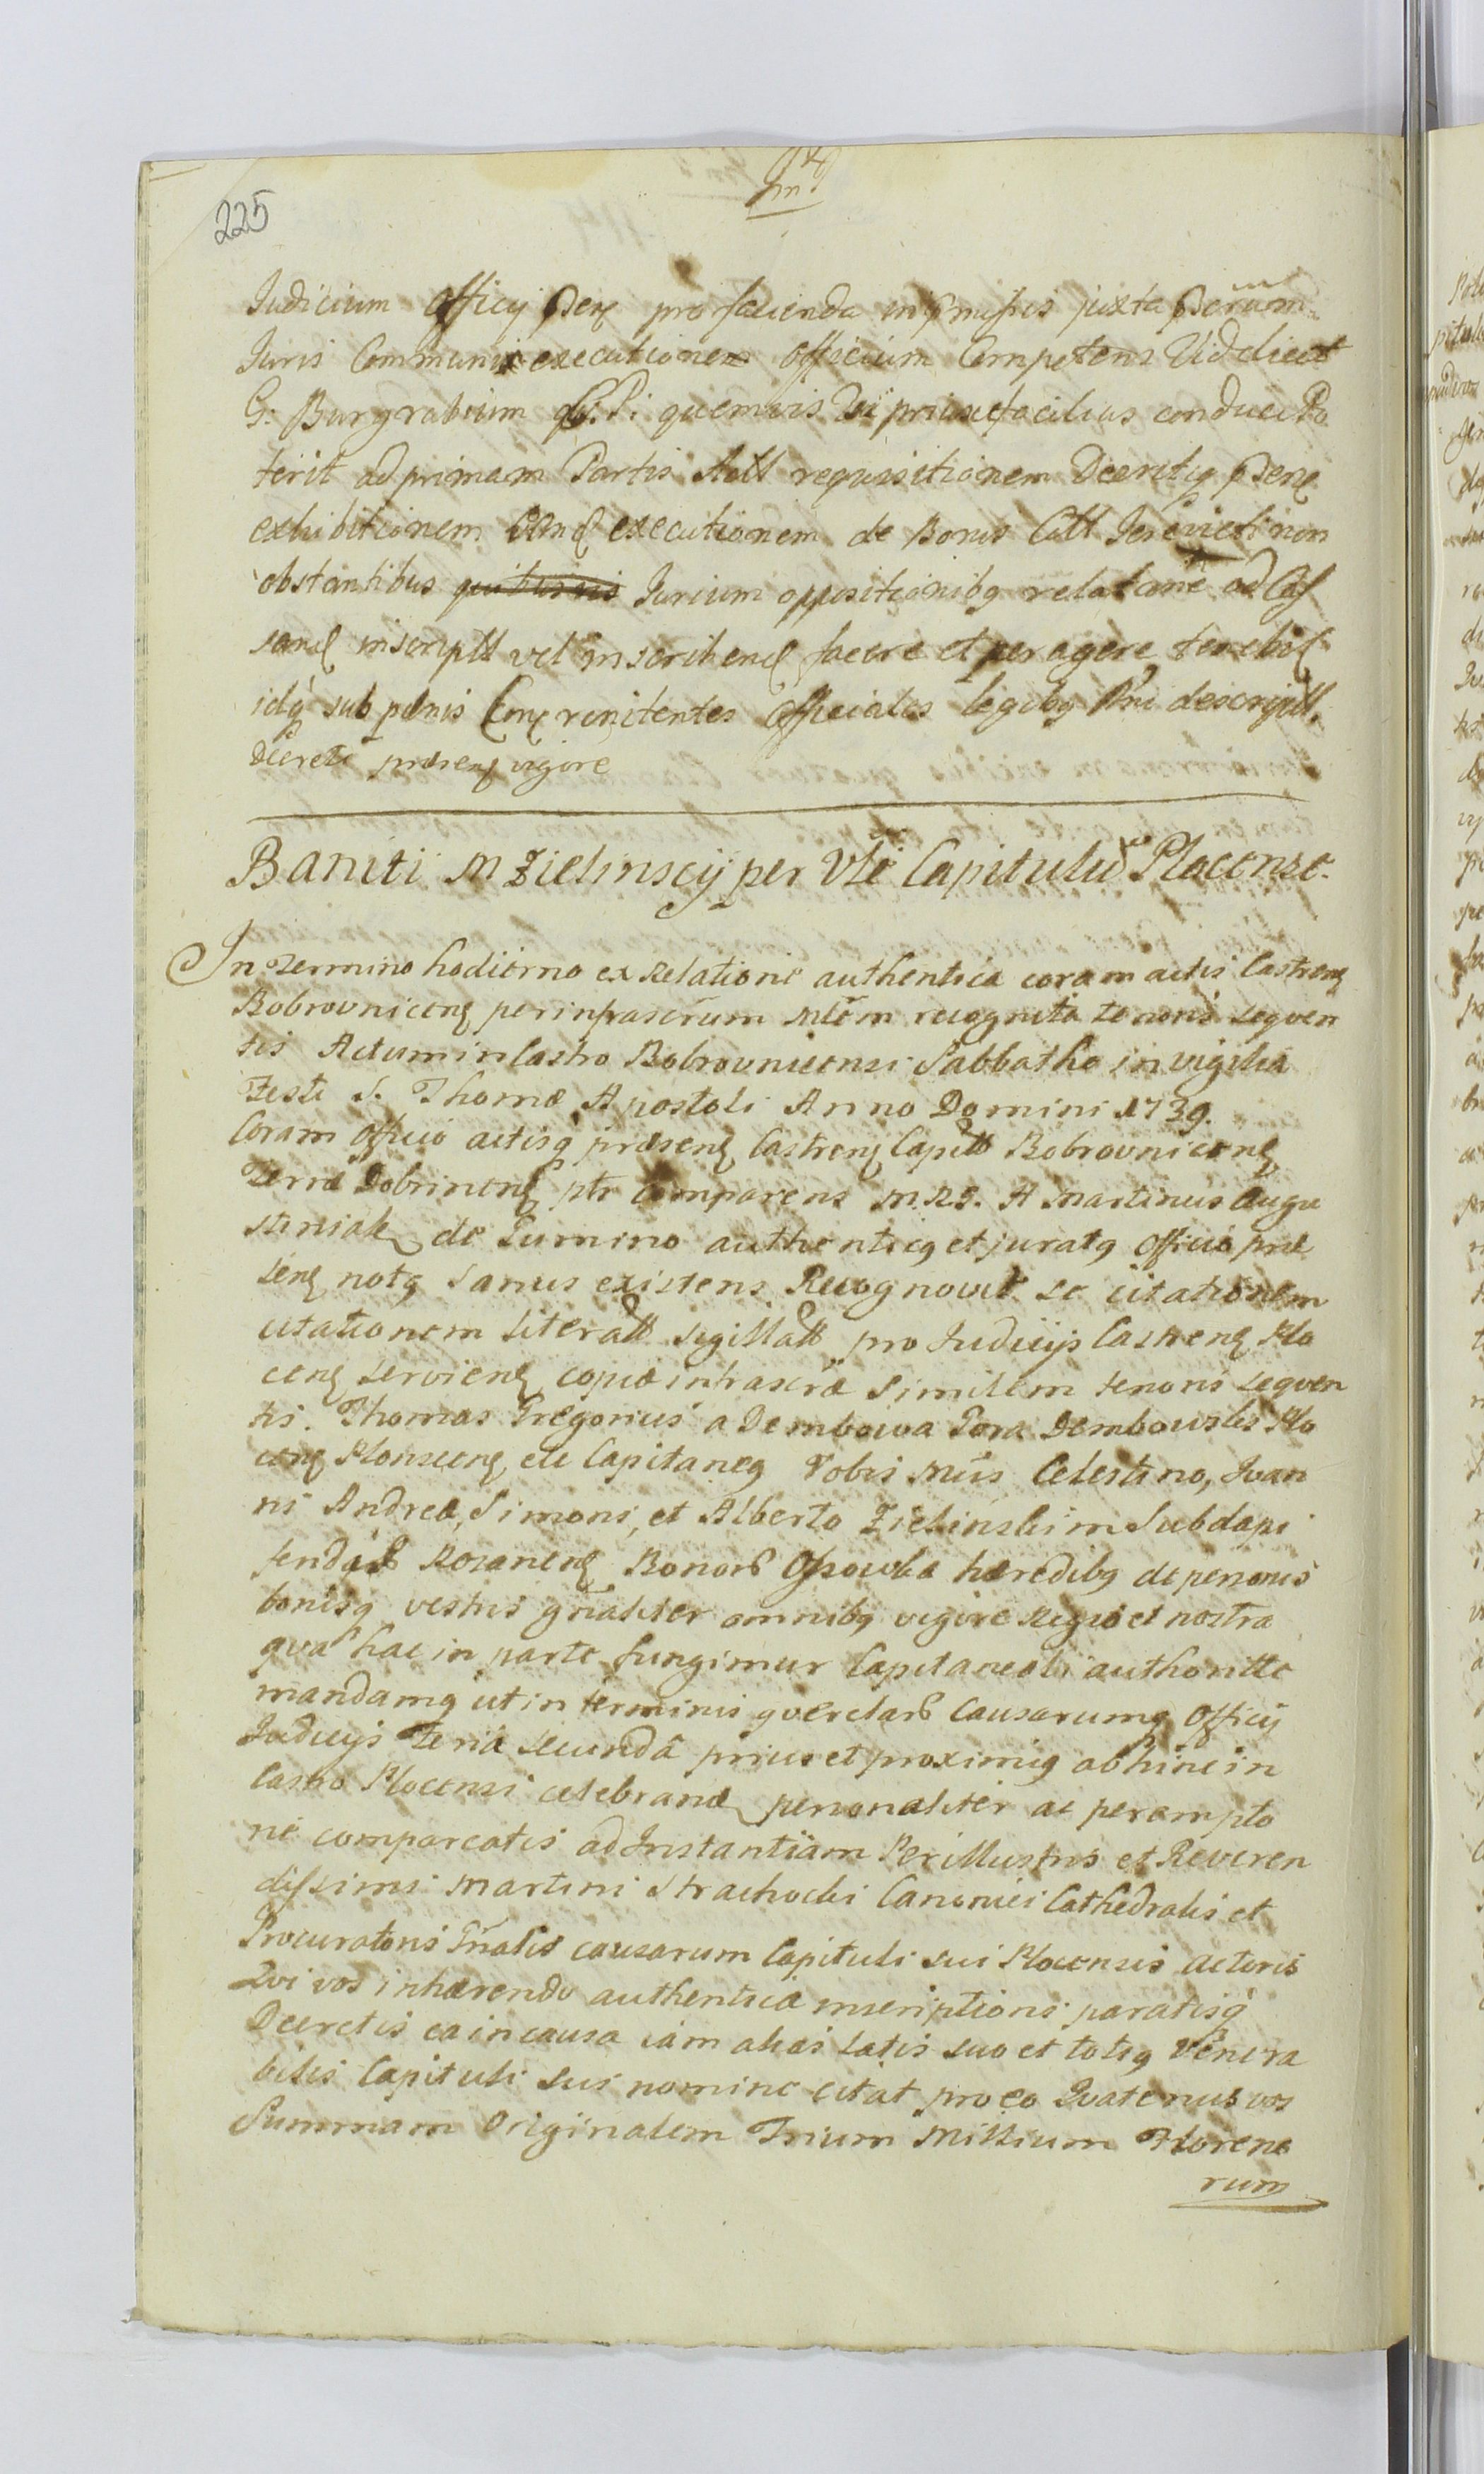 225
Judicium Officij pro facienda in juxta
Juris Communis executione Officium Competens Videlicet
G: Burgrabium quemvis Vi prius et facilius conduci Po
terit ad primam Partis Actt requisitionem Decretiq
exhibitionem executionem de Bonis Citt non
obstantibus Jurium oppositionibq relatione ad
inscriptt vel facere et peragere tenebit
idq sub penis renitentes Officiales legibq descriptt
Decreti vigore
Baniti M Zielinscij per Vle Capitulu Plocense.
In Termino hodierno ex Relatione authentica coram actis Castren
Bobrovnicen per infrascrum Mlem recognita tenoris sequen
tis Actum in Castro Bobrovnicensi Sabbatho in vigilia
Festi S. Thomæ Apostoli Anno Domini 1739.
Coram Officio actisq præsen Castren Capitt Bobrovnicen
Terræ Dobrinen ptr Comparens M. R. G. A Martinus Augu
stiniak de Tumino authenticq et juratq Officio præ
sen notq Sanus existens Recognovit se citationem
citationem literatt sigillatt pro Judicijs Castren Plo
cen servien copiæ infrascræ similem tenoris sequen
tis. Thomas Gregorius a Dembowa Gora Dembowski Plo
cen Plonscen etc Capitaneq Vobis Mtis Celestino, Ioan
ni Andreæ, Simoni, et Alberto Zielinskim Subdapi
feridar Rozanen Bonor Ossowka hæredibq de personis
bonisq vestris gnaliter omnibq vigore Regia et nostra
qva hac in parte fungimur Capitaneali authoritte
mandamq ut in terminis qverelar Causarumq Officij
Judicijs Feria secunda prius et proximiq abhinc in
Castro Plocensi celebran personaliter ac perempto
rie compareatis ad Instantiam Perillustris et Reveren
dissimi Martini Strachocki Canonici Cathedralis et
Procuratoris Gnalis causarum Capituli sui Plocensis Actoris
Qvi vos inhærendo authenticæ inscriptioni paratisq
Decretis ea in causa iam alias latis suo et totiq Venera
bilis Capituli sui nomine citat pro eo Qvatenus vos
Summam Originalem Trium Millium Floreno
rum